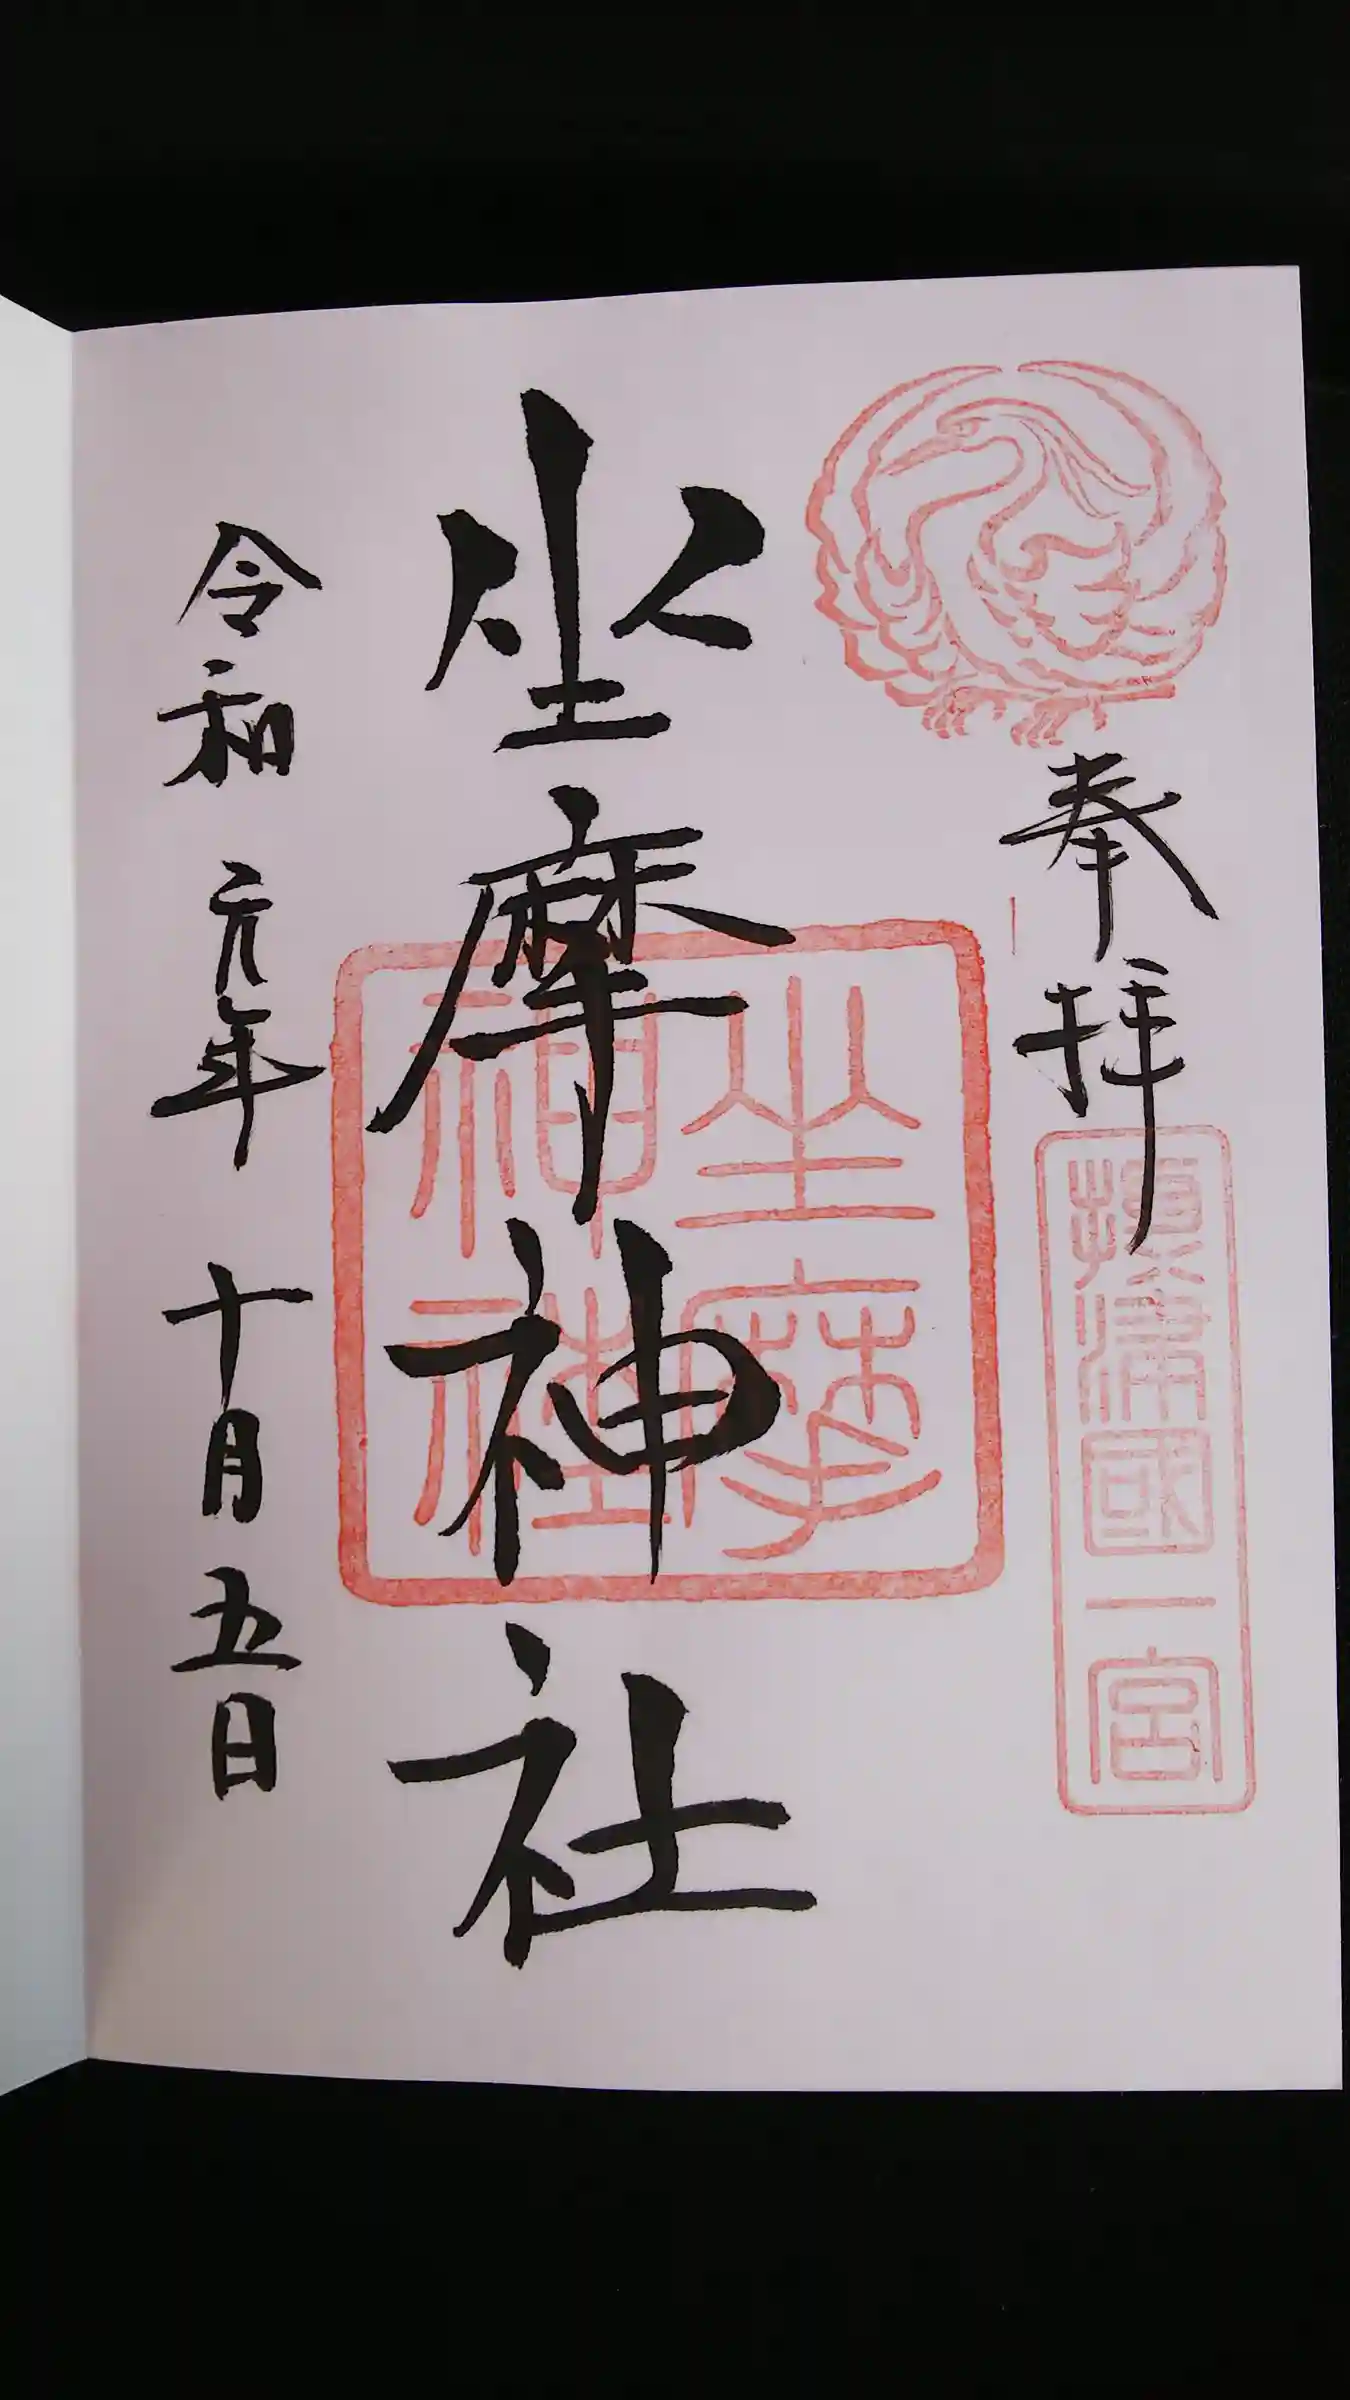 奉拝
攝津國一宮
坐摩神社
坐摩
神社
令和元年十月五日